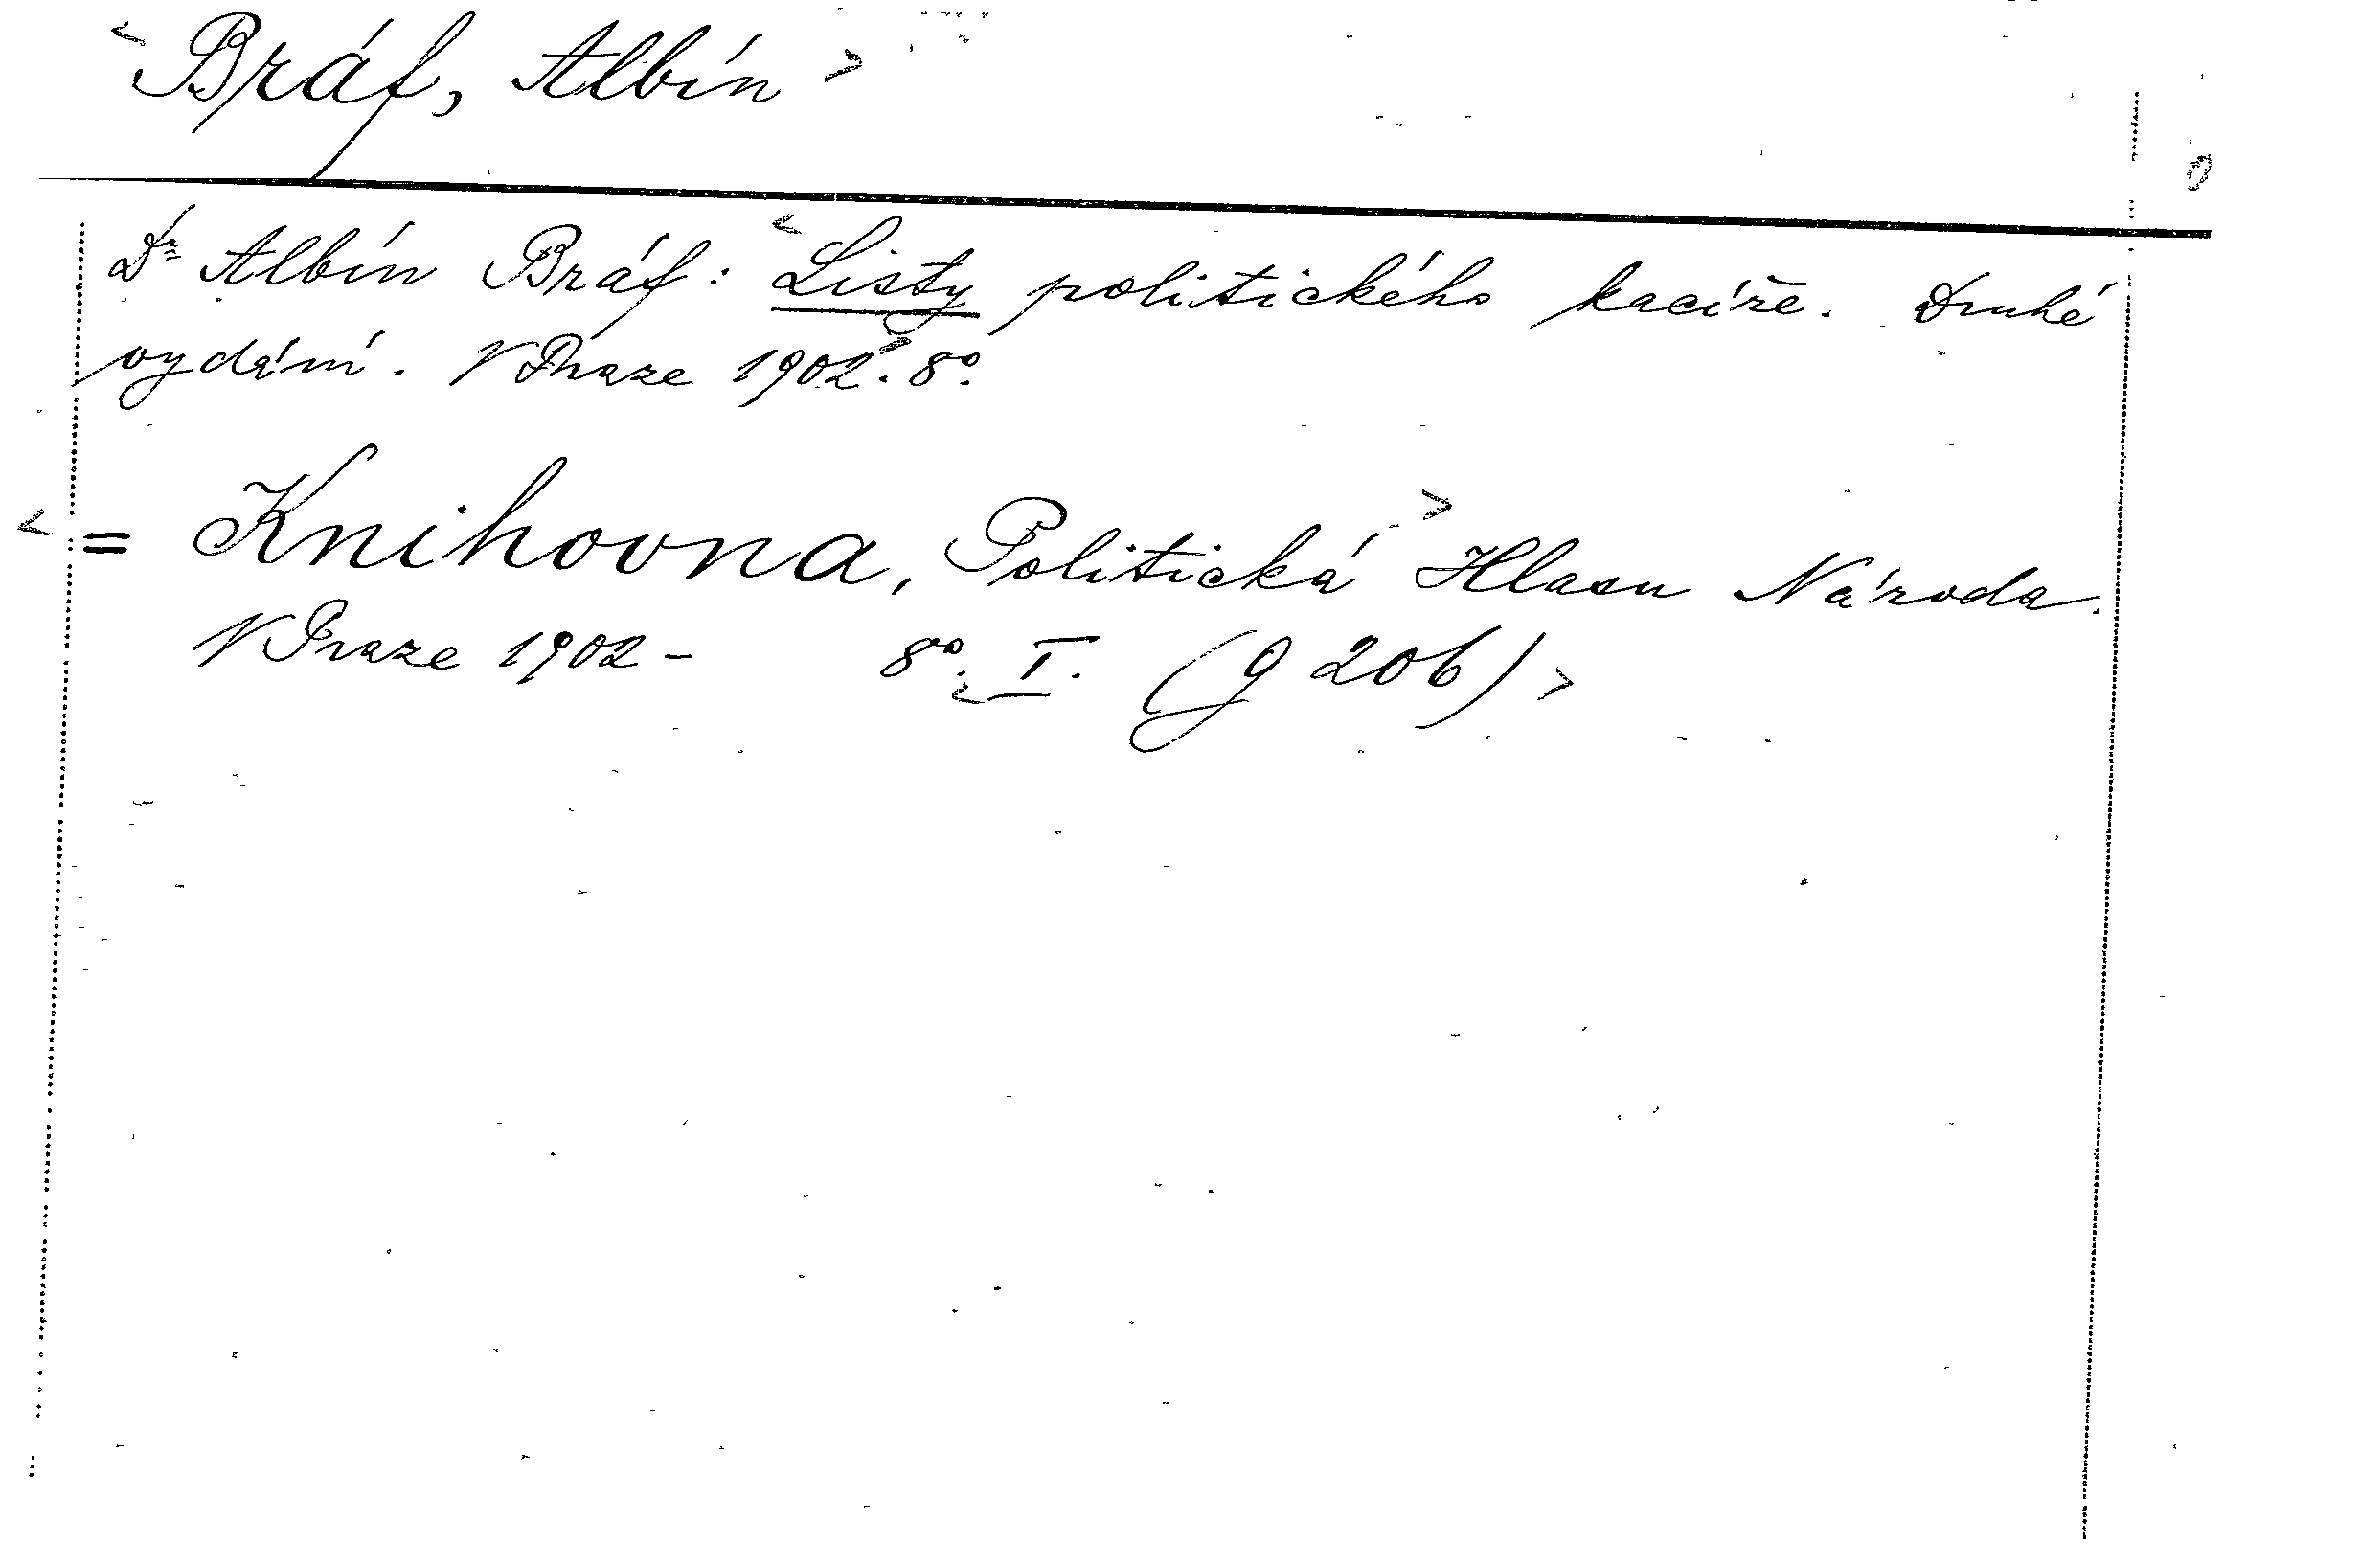 < Bráf, Albín >
Dr Albín Bráf: < Listy politického kacíře. Druhé
vydání. V Praze 1902. > 8o.
< = Knihovna, Politická > Hlasu Národa.
V Praze 1902 - 8o. < I. (g 206) >